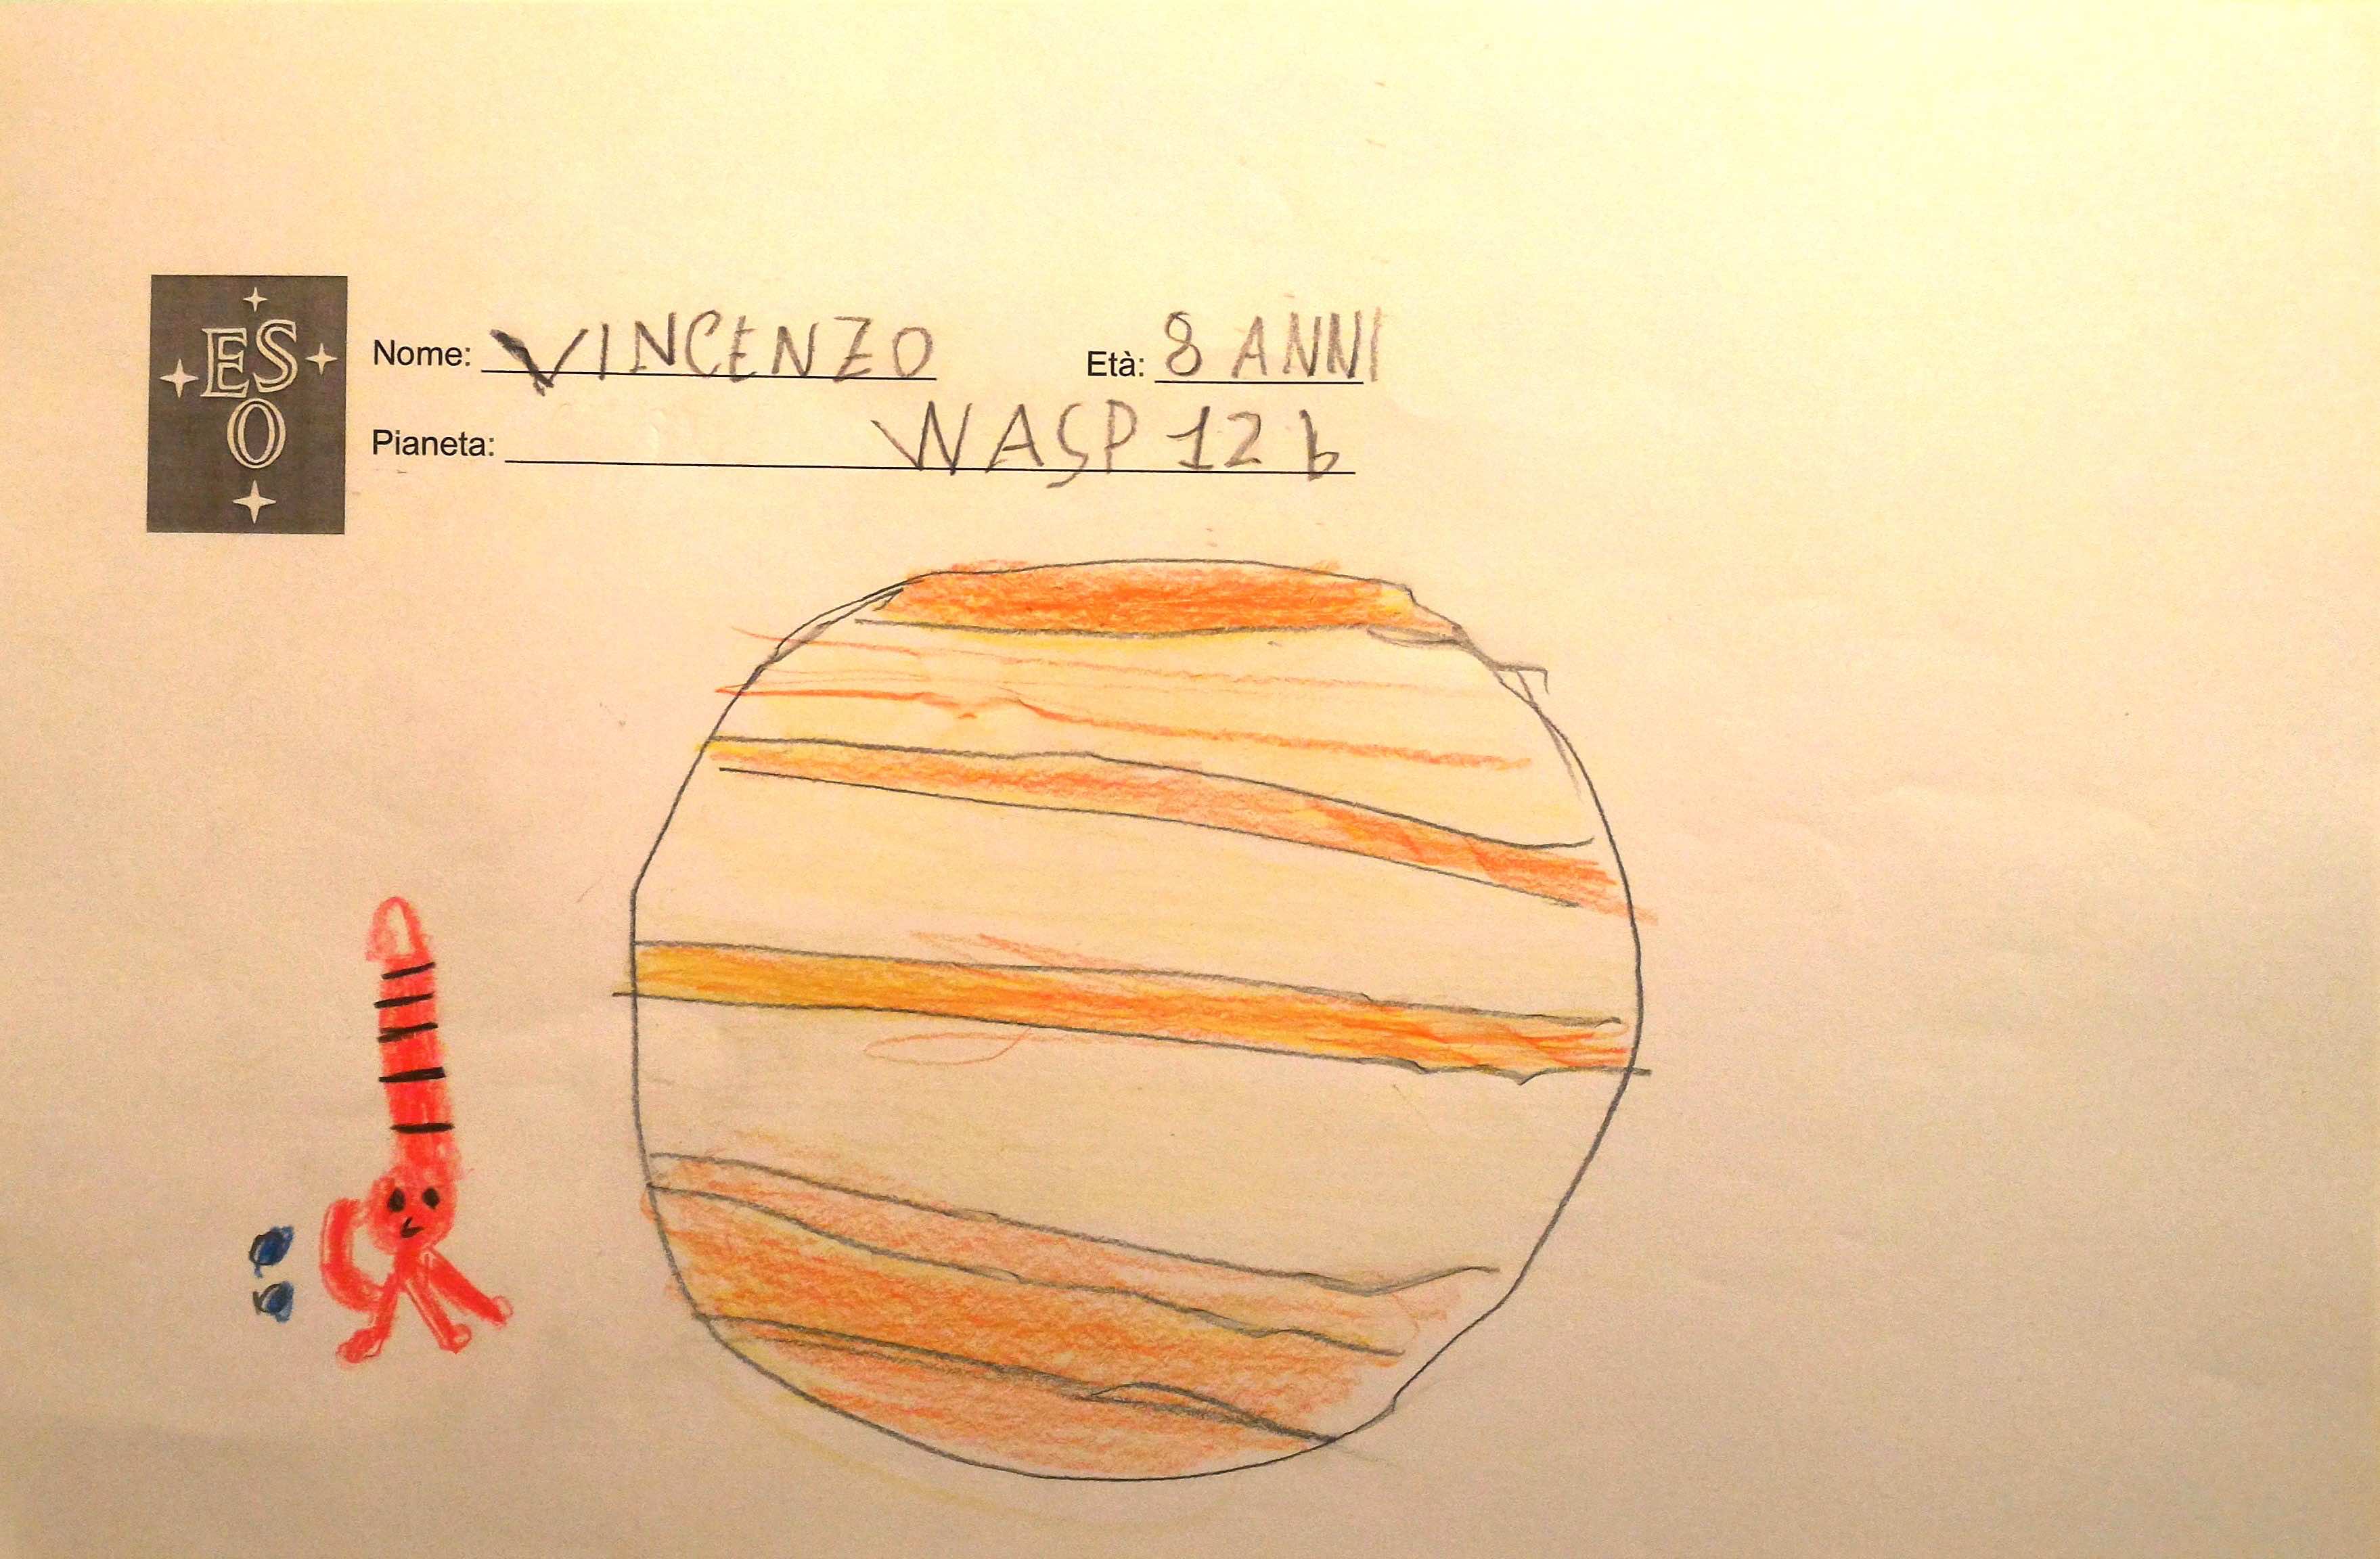 ES
O
Nome: VINCENZO Età: 8 ANNI
Pianeta: WASP 12 b